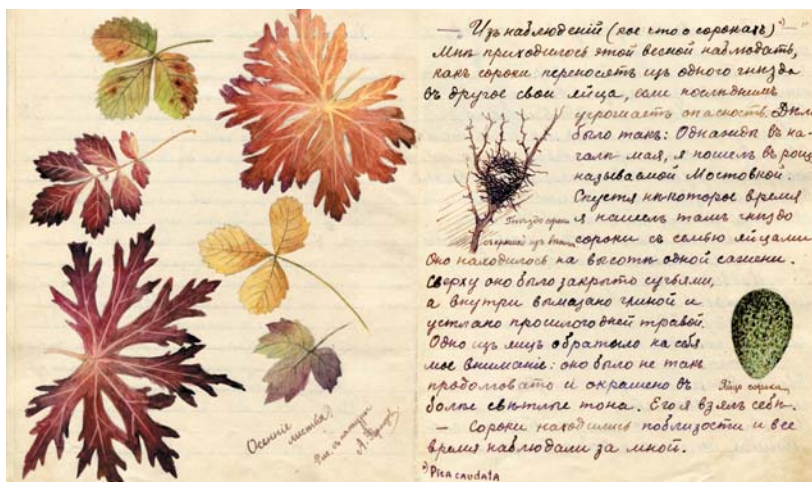 Осеннiе
листья.
Рис. съ натуры
А.
— Изъ наблюденiй (кое что о сорокахъ)*)—
Мнѣ приходилось этой весной наблюдать,
какъ сороки переносятъ изъ одного гнѣзда
въ другое свои яйца, если послѣднимъ
угрожаетъ опасность. Дѣло
было такъ: Однажды въ на-
чалѣ мая, я пошелъ въ рощу
называемой Мостовной.
Спустя нѣкоторое время
я нашелъ тамъ гнѣздо
сороки съ семью яйцами
Гнѣздо сороки
Оно находилось на высотѣ одной сажени.
Сверху оно было закрыто сучьями,
а внутри вымазано глиной и
устлано прошлогодней травой.
Одно изъ яицъ обратило на себя
мое вниманiе: оно было не такъ
продолговато и окрашено въ
болѣе свѣтлые тона. Его я взялъ себѣ.
Яйцо сороки
— Сороки находились поблизости и все
время наблюдали за мной.
*) Pica caudata